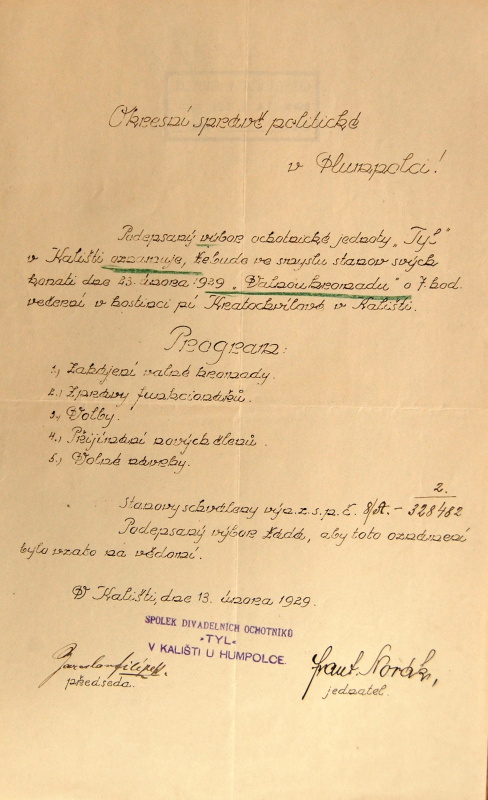 Okresní správě politické
v Humpolci!
Podepsaný výbor ochotnické jednoty „Tyl"
v Kališti oznamuje, že bude ve smyslu stanov svých
konati dne 23. února 1929 „Valnou hromadu" o 7. hod.
večerní v hostinci pí Kratochvílové v Kališti.
Program:
1.) Zahájení valné hromady.
2.) Zprávy funkcionářů.
3.) Volby.
4.) Přijímání nových členů.
5.) Volné návrhy.
2.
Stanovy schváleny výn. z. s. p. č. 8/A. - 328482
Podepsaný výbor žádá, aby toto oznámení
bylo vzato na vědomí.
V Kališti, dne 13. února 1929.
SPOLEK DIVADELNÍCH OCHOTNÍKŮ
»TYL«
V KALIŠTI U HUMPOLCE.
Jaroslav Filipek. Frant. Novák,
předseda. jednatel.